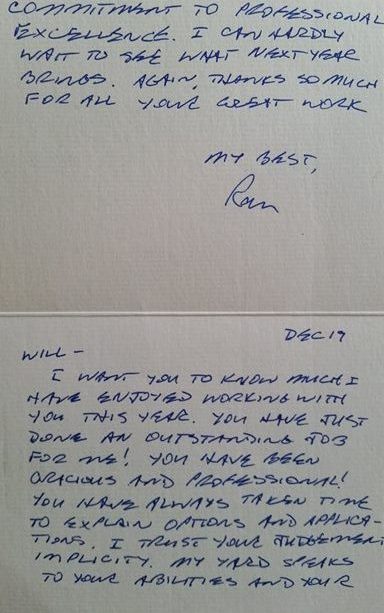 COMMITMENT TO PROFESSIONAL
EXCELLENCE. I CAN HARDLY
WAIT TO SEE WHAT NEXT YEAR
BRINGS. AGAIN, THANKS SO MUCH
FOR ALL YOUR GREAT WORK
MY BEST,
Ron
DEC 19
WILL -
I WANT YOU TO KNOW MUCH I
HAVE ENJOYED WORKING WITH
YOU THIS YEAR. YOU HAVE JUST
DONE AN OUTSTANDING JOB
FOR ME! YOU HAVE BEEN
GRACIOUS AND PROFESSIONAL!
YOU HAVE ALWAYS TAKEN TIME
TO EXPLAIN OPTIONS AND APPLICA-
TIONS. I TRUST YOUR JUDGEMENT
IMPLICITY. MY YARD SPEAKS
TO YOUR ABILITIES AND YOUR